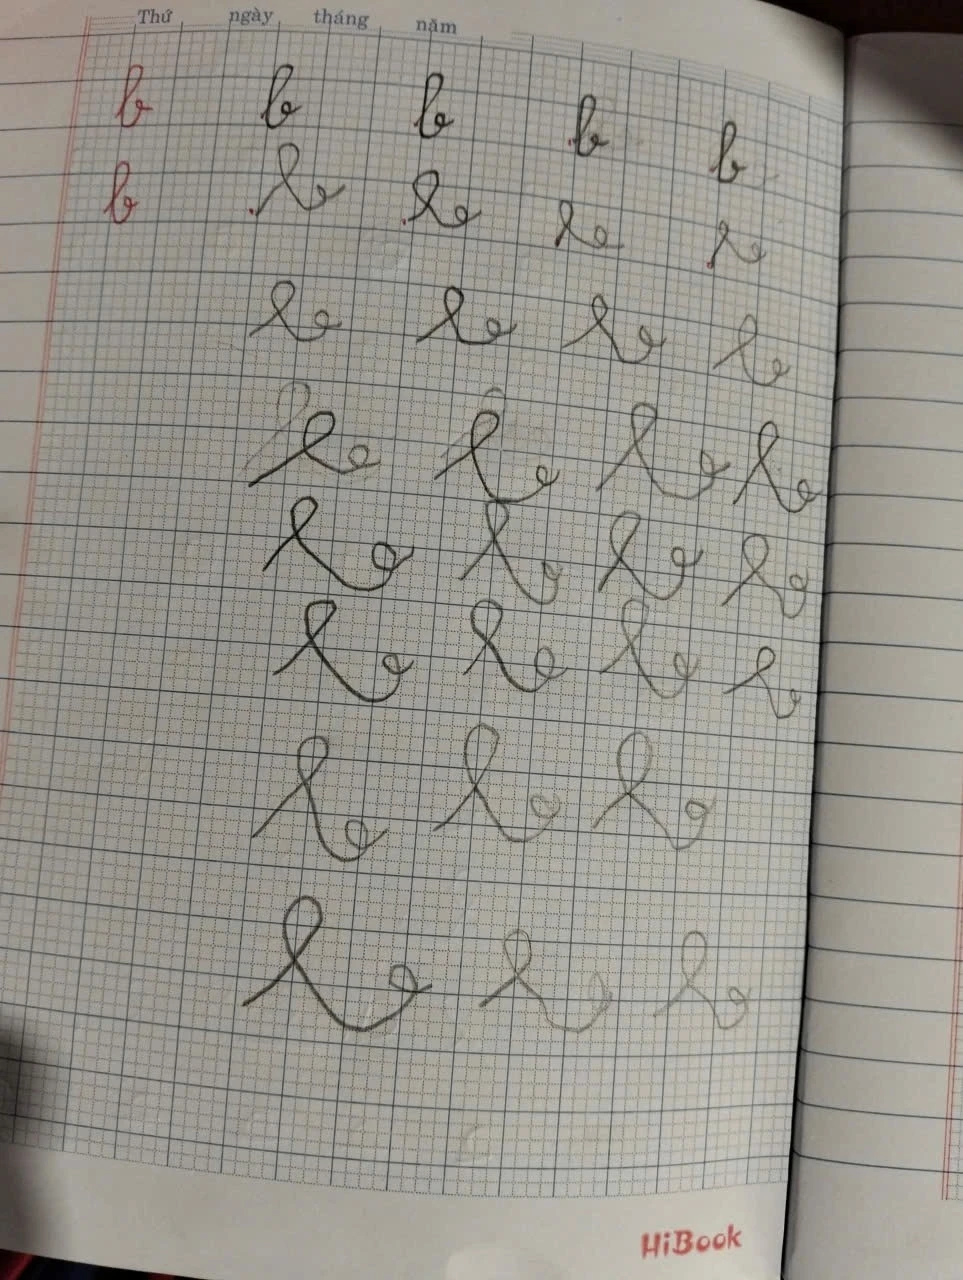 Thứ ngày tháng năm
b b b b b
b b b b b
b b b b
b b b b
b b b b
b b b b
b b b
b b b
HiBook